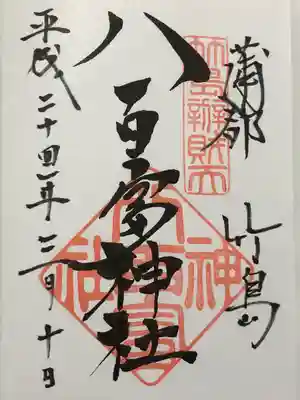 蒲郡 竹島
竹島辨財天
八百富神社
平成二十四年三月十日